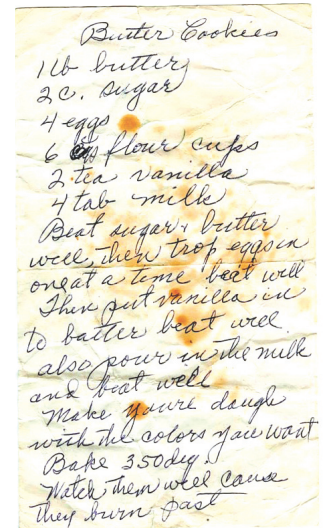 Butter Cookies
1 lb butter
2 c. sugar
4 eggs
6 flour cups
2 tea vanilla
4 tab milk
Beat sugar & butter
well, then trop eggs in
one at a time beat well
Then put vanilla in
to batter beat well.
also pour in the milk
and beat well
Make youre dough
with the colors you want
Bake 350 deg.
Watch them well cause
they burn fast